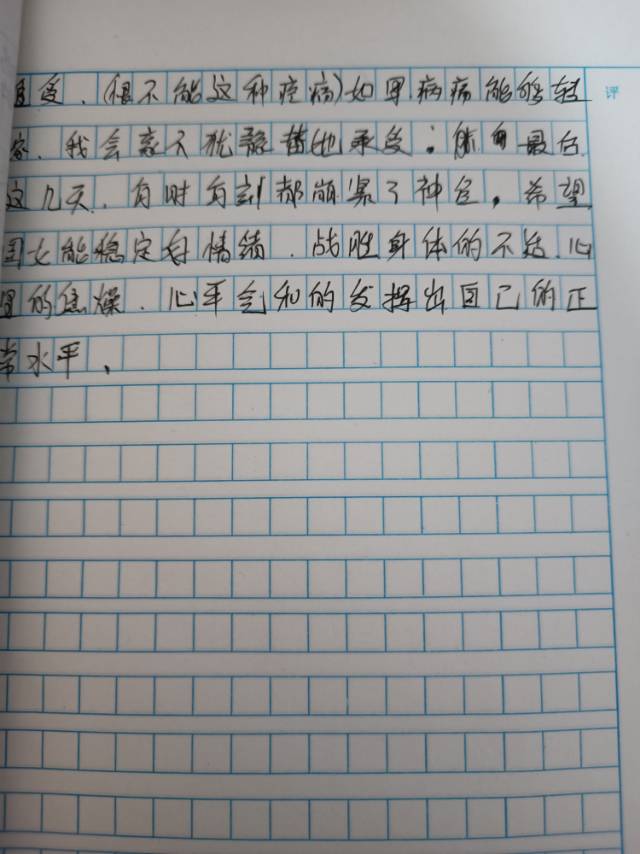 受、(恨不能这种疼痛)如果病痛能够转 评
我会毫不犹豫替她承受；最后
这几天，有时有刻都崩紧了神经，希望
女能稳定好情绪、战胜身体的不适、心
里的焦燥、心平气和的发挥出自己的正
常水平、